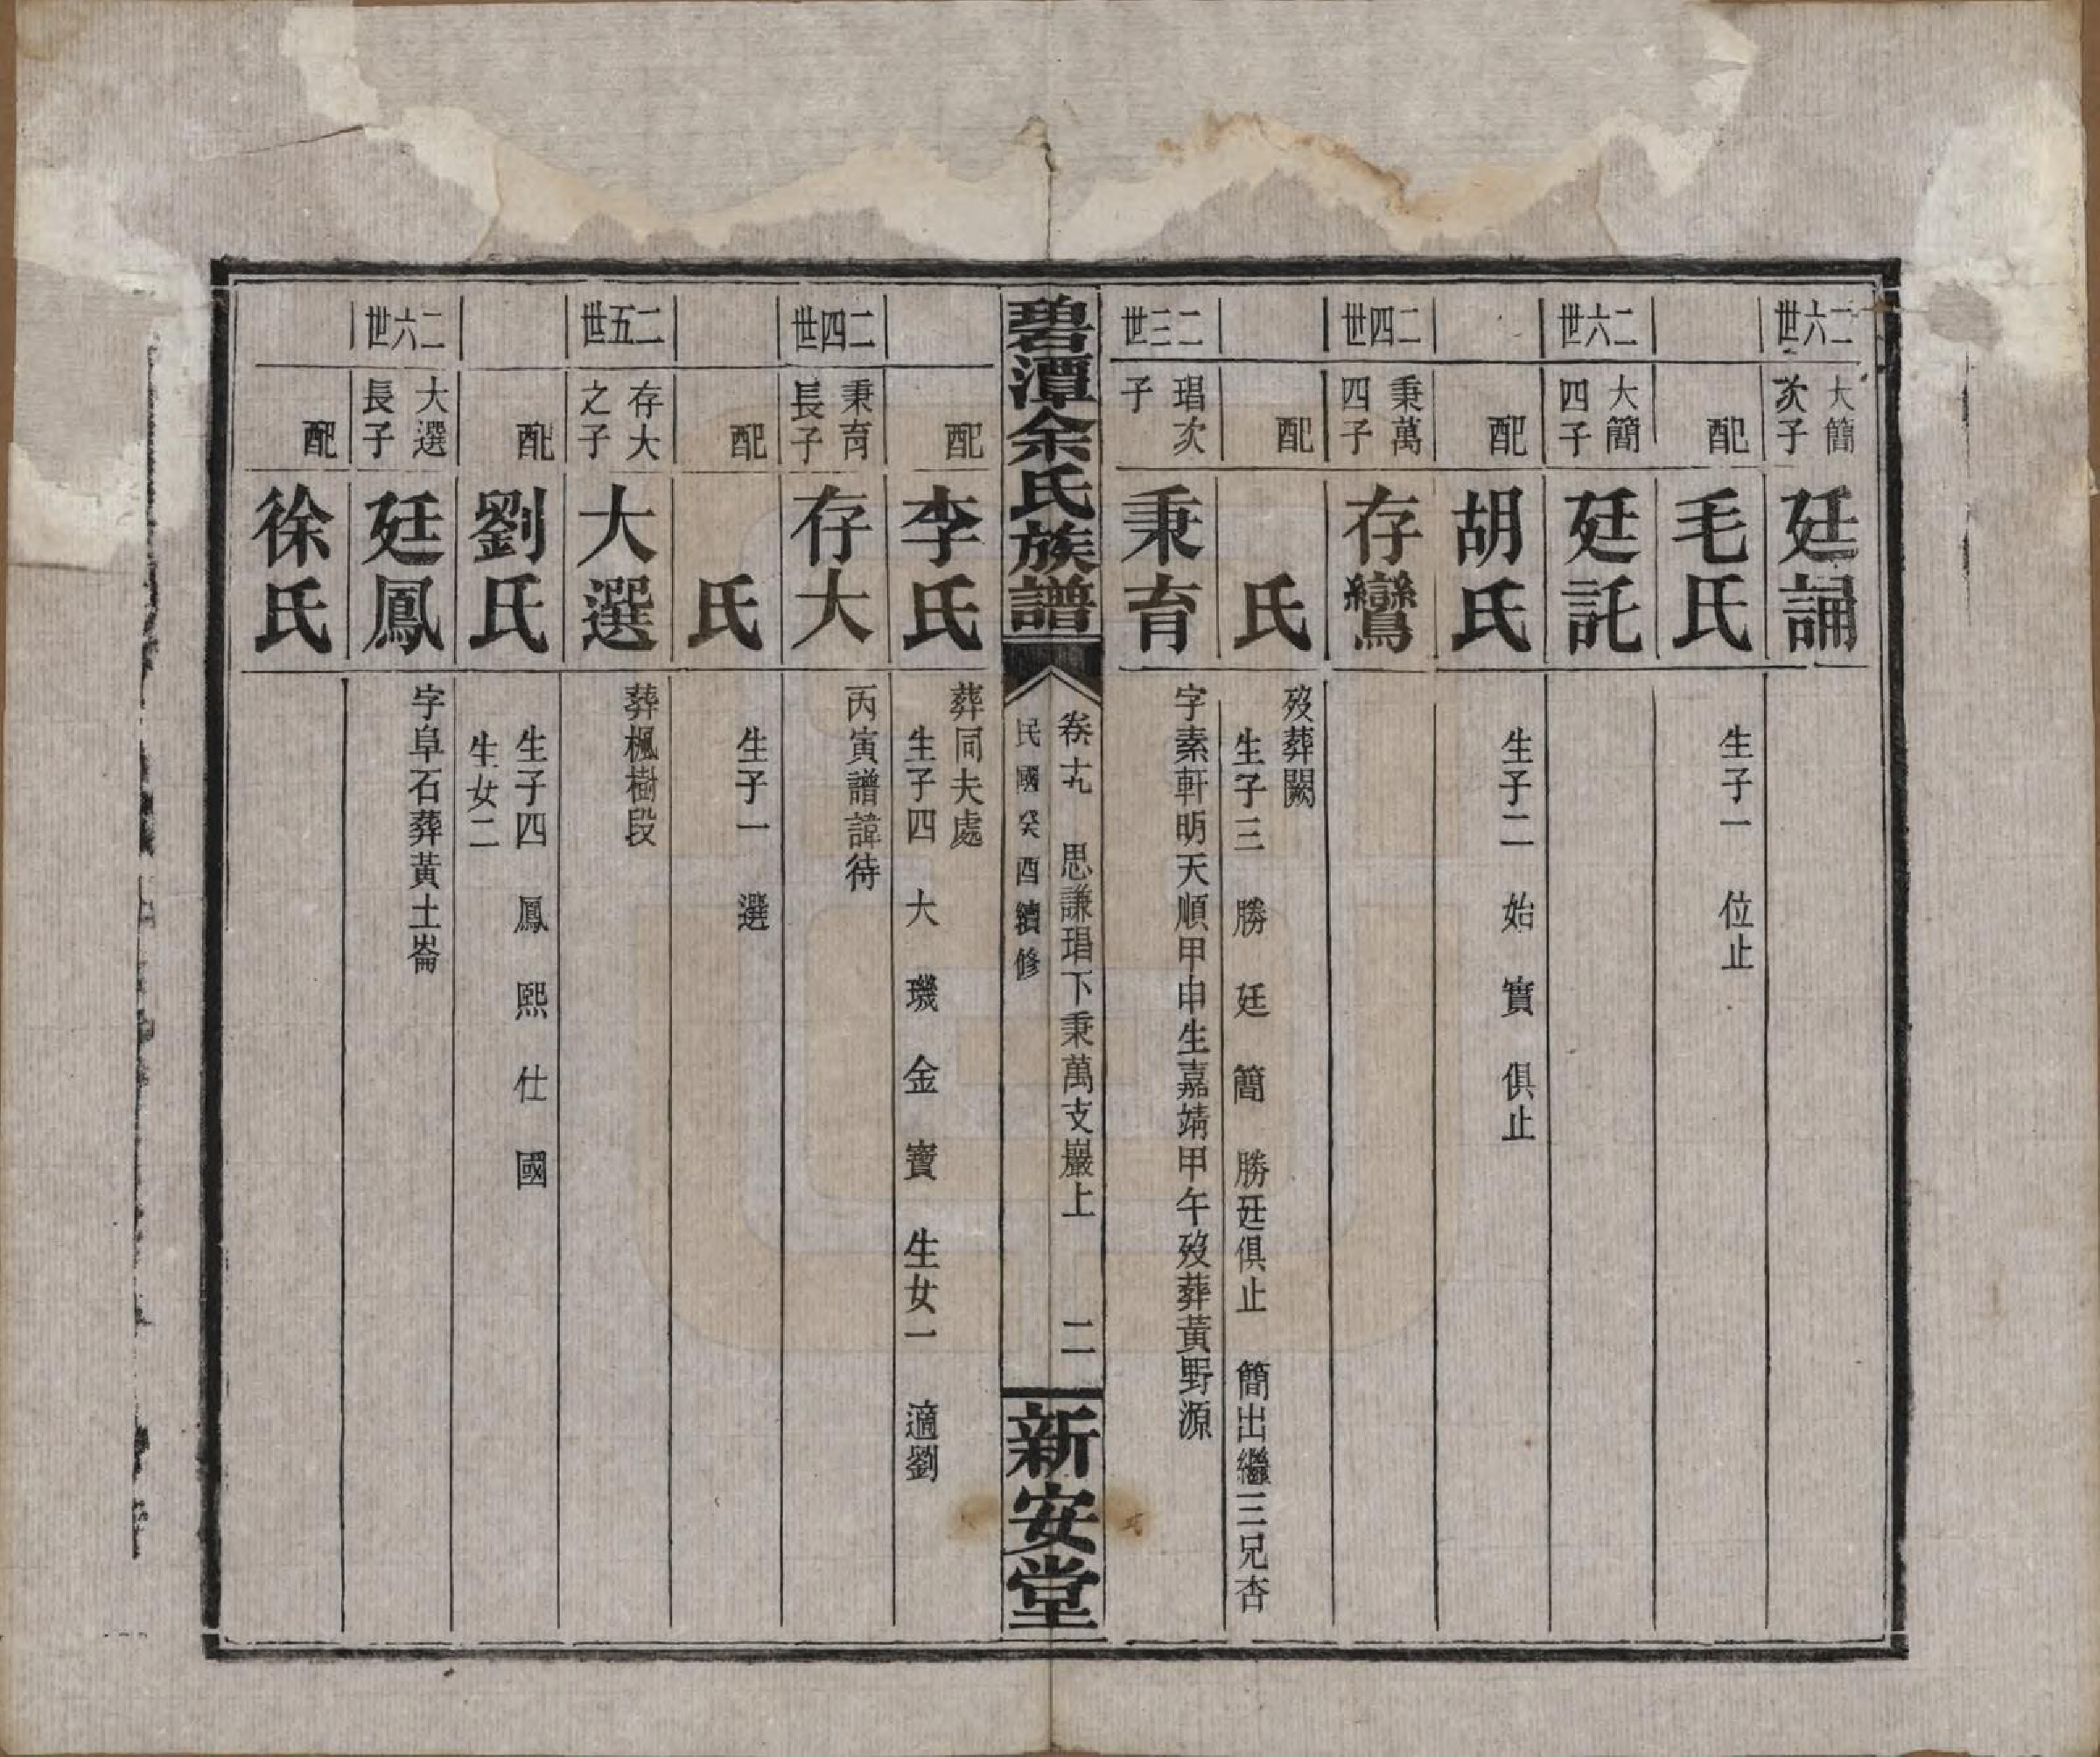 二六世
大簡
次子
廷誦
配
毛氏
生子一　位止
二六世
大簡
四子
廷託
配
胡氏
生子二　始　實　俱止
二四世
秉萬
四子
存鸞
歿葬闕
配
氏
生子三　勝　廷　簡　勝廷俱止　簡出繼三兄杏
二三世
琩次
子
秉育
字素軒明天順甲申生嘉靖甲午歿葬黃野源
碧潭余氏族譜
卷十九　思謙琩下秉萬支巖上　二
民國癸酉續修
新安堂
葬同夫處
配
李氏
生子四　大　璣　金　寶　生女一　適劉
二四世
秉育
長子
存大
丙寅譜諱待
配
氏
生子一　選
二五世
存大
之子
大選
葬楓樹段
配
劉氏
生子四　鳳　熙　仕　國
生女二
二六世
大選
長子
廷鳳
字阜石葬黃土崙
配
徐氏